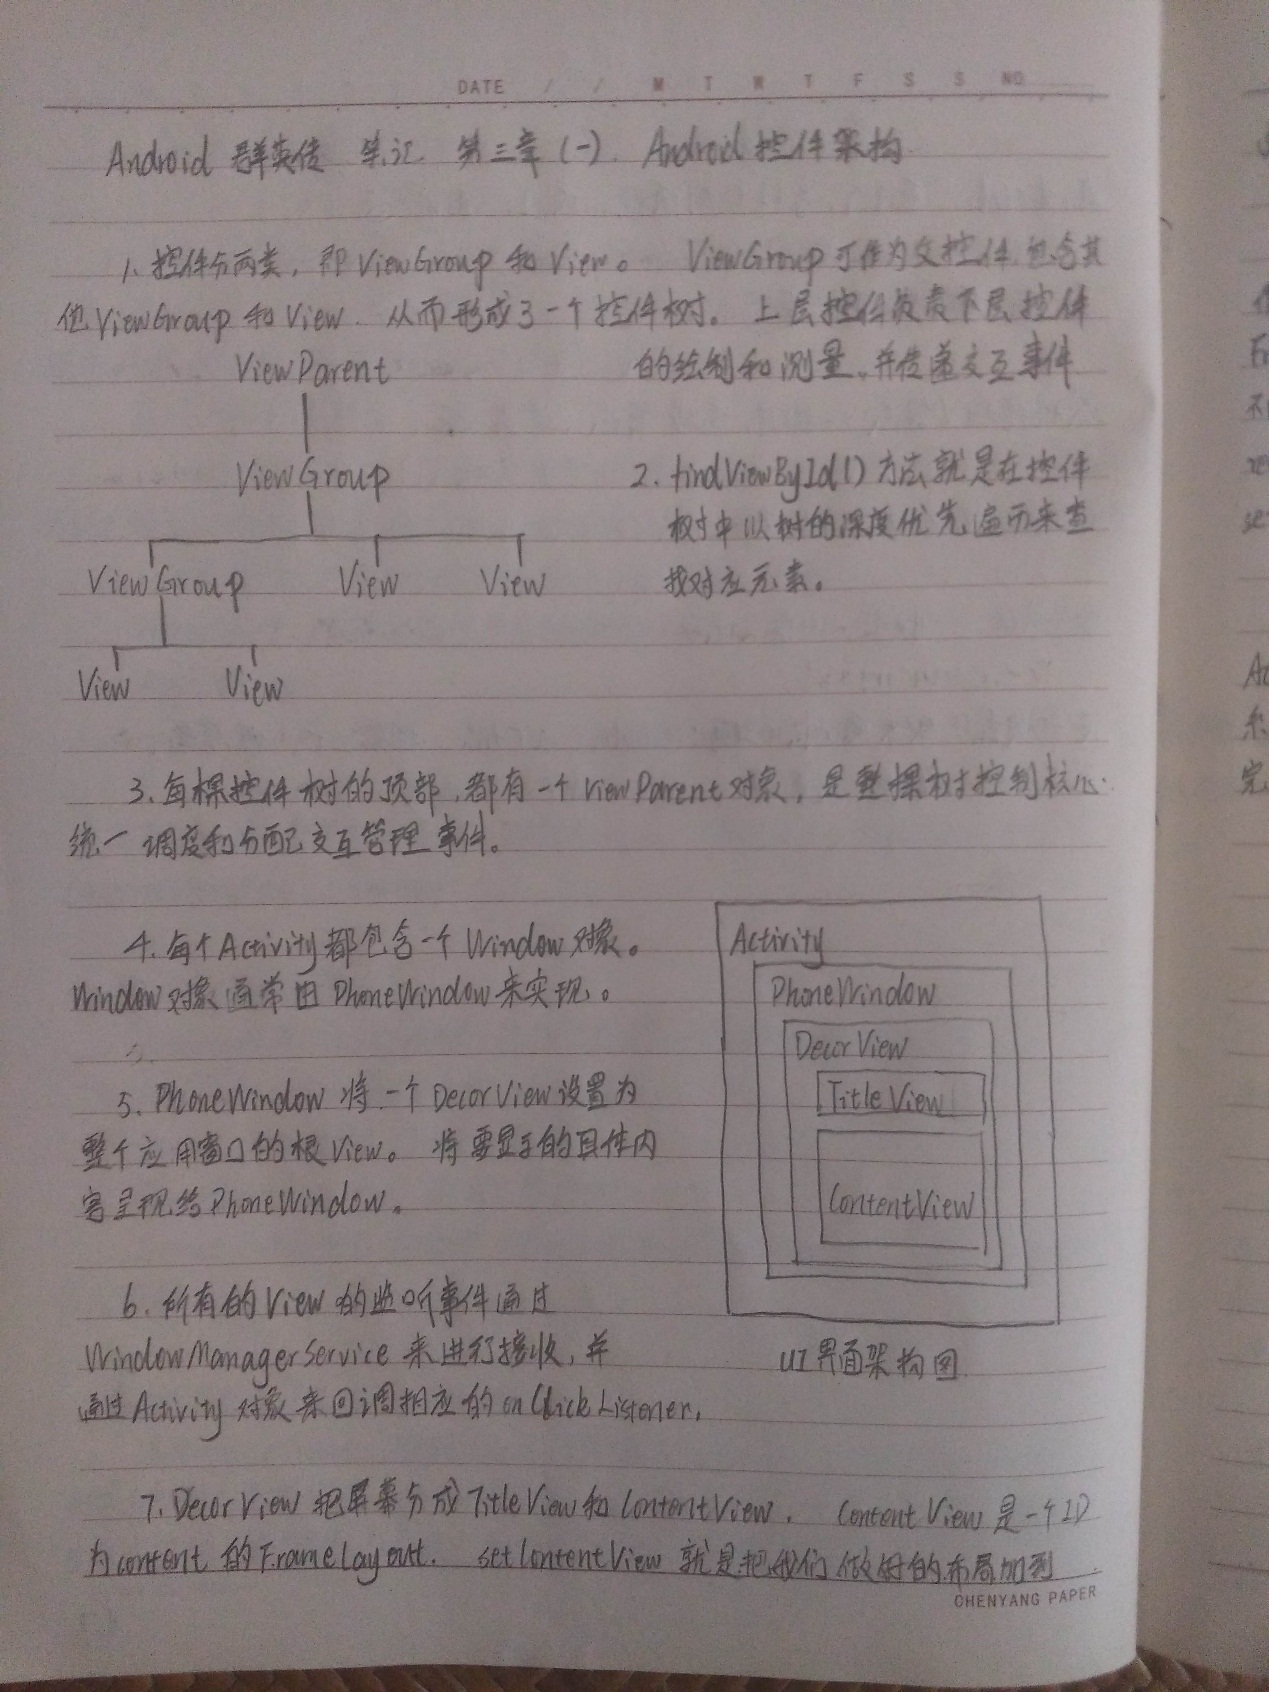 DATE / / M T W T F S S NO
Android 群英传 笔记 第三章 (一). Android 控件架构
1. 控件分两类，即ViewGroup 和View。 ViewGroup 可作为父控件包含其
他ViewGroup 和View. 从而形成了一个控件树。上层控件负责下层控件
的绘制和测量，并传递交互事件
ViewParent
ViewGroup
ViewGroup View View
View View
2. findViewById() 方法就是在控件
树中以树的深度优先遍历来查
找对应元素。
3. 每棵控件树的顶部，都有一个ViewParent对象，是整棵树控制核心.
统一调度和分配交互管理事件。
4. 每个Activity都包含一个Window对象。
Window对象通常由PhoneWindow来实现。
5. PhoneWindow 将一个DecorView设置为
整个应用窗口的根View。将要显示的具体内
容呈现给PhoneWindow。
Activity
PhoneWindow
DecorView
TitleView
ContentView
UI界面架构图
6. 所有的View的监听事件通过
WindowManagerService来进行接收，并
通过Activity对象来回调相应的onClickListener.
7. DecorView把屏幕分成TitleView和ContentView. ContentView是一个ID
为content的FrameLayout. setContentView就是把我们做好的布局加到
CHENYANG PAPER